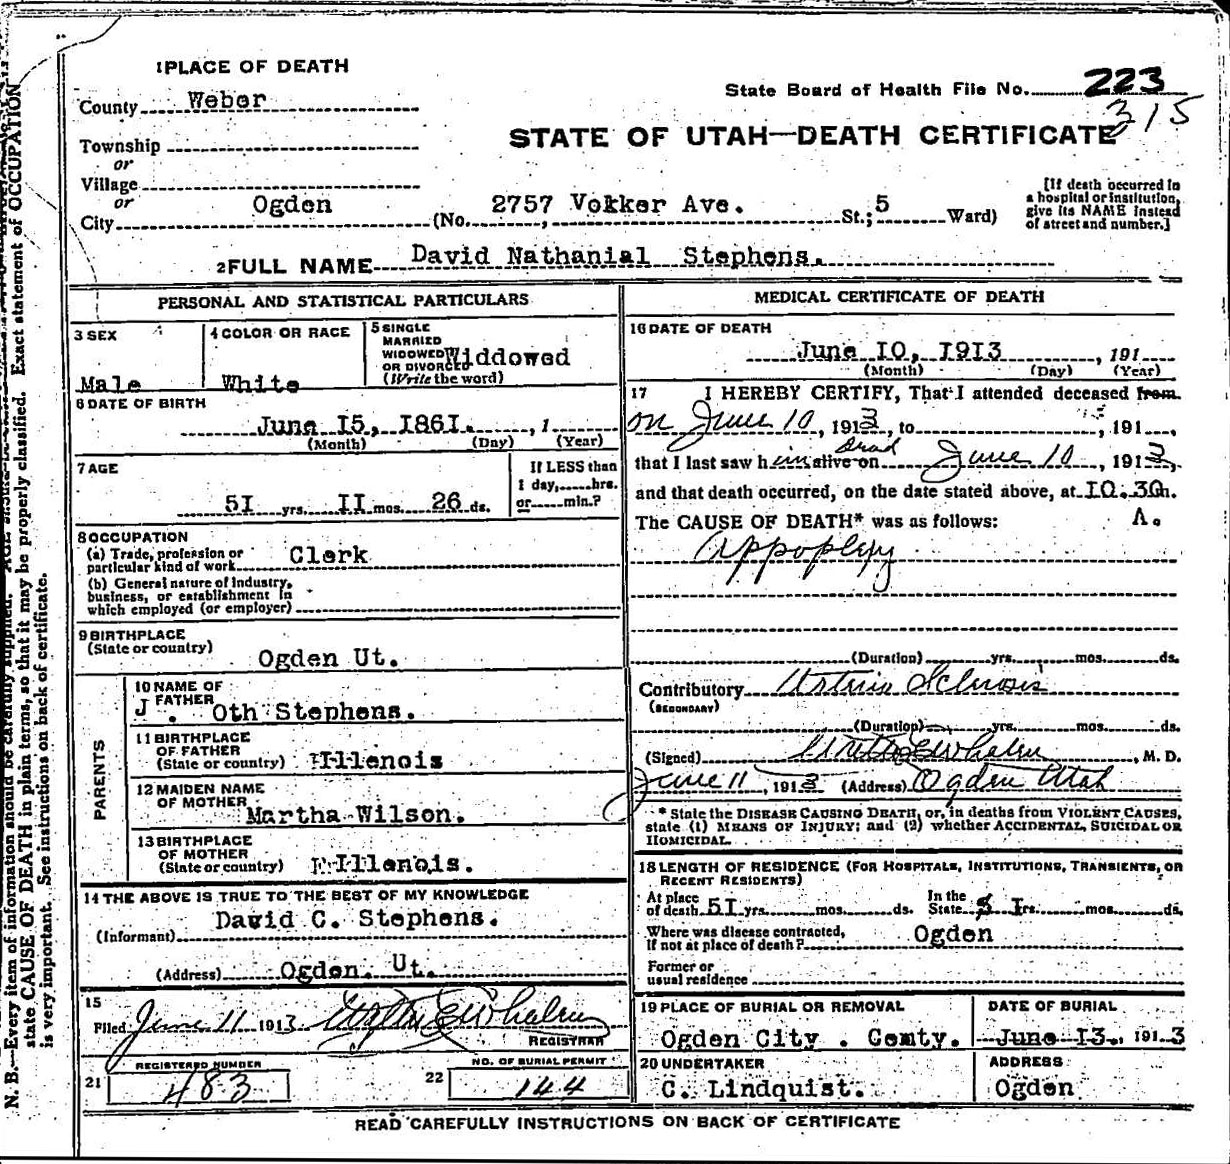 1 PLACE OF DEATH
State Board of Health File No. 223
315
County Weber
STATE OF UTAH—DEATH CERTIFICATE
Township
or
Village
or
City Ogden (No. 2757 Vokker Ave. St.; 5 Ward)
[If death occurred in
a hospital or institution,
give its NAME instead
of street and number.]
2 FULL NAME David Nathanial Stephens.
PERSONAL AND STATISTICAL PARTICULARS
3 SEX
Male
4 COLOR OR RACE
White
5 SINGLE
MARRIED
WIDOWED
OR DIVORCED
(Write the word)
Widdowed
6 DATE OF BIRTH
June 15, 1861. , 1
(Month) (Day) (Year)
7 AGE
51 yrs. 11 mos. 26 ds.
If LESS than
1 day, hrs.
or min.?
8 OCCUPATION
(a) Trade, profession or
particular kind of work Clerk
(b) General nature of Industry,
business, or establishment in
which employed (or employer)
9 BIRTHPLACE
(State or country)
Ogden Ut.
PARENTS
10 NAME OF
FATHER
J. Oth Stephens.
11 BIRTHPLACE
OF FATHER
(State or country) Illenois
12 MAIDEN NAME
OF MOTHER
Martha Wilson.
13 BIRTHPLACE
OF MOTHER
(State or country) Illenois.
14 THE ABOVE IS TRUE TO THE BEST OF MY KNOWLEDGE
David C. Stephens.
(Informant)
(Address) Ogden. Ut.
15
Filed June 11 1913
REGISTRAR
REGISTERED NUMBER
21 483
NO. OF BURIAL PERMIT
22 144
MEDICAL CERTIFICATE OF DEATH
16 DATE OF DEATH
June 10, 1913 , 191
(Month) (Day) (Year)
17 I HEREBY CERTIFY, That I attended deceased from
on June 10, 1913, to , 191 ,
that I last saw him alive on dead June 10, 1913,
and that death occurred, on the date stated above, at 10.30 m.
A.
The CAUSE OF DEATH* was as follows:
Appoplexy
(Duration) yrs. mos. ds.
Contributory Arteria Sclerosis
(SECONDARY)
(Duration) yrs. mos. ds.
(Signed) E Whalen, M. D.
June 11, 1913 (Address) Ogden Utah
* State the DISEASE CAUSING DEATH, or, in deaths from VIOLENT CAUSES,
state (1) MEANS OF INJURY; and (2) whether ACCIDENTAL, SUICIDAL OR
HOMICIDAL.
18 LENGTH OF RESIDENCE (FOR HOSPITALS, INSTITUTIONS, TRANSIENTS, OR
RECENT RESIDENTS)
At place
of death 51 yrs. mos. ds.
In the
State 51 yrs. mos. ds.
Where was disease contracted,
If not at place of death? Ogden
Former or
usual residence
19 PLACE OF BURIAL OR REMOVAL
Ogden City . Cemty.
DATE OF BURIAL
June 13., 1913
20 UNDERTAKER
C. Lindquist.
ADDRESS
Ogden
READ CAREFULLY INSTRUCTIONS ON BACK OF CERTIFICATE
N. B.—Every item of information should be carefully supplied. AGE
state CAUSE OF DEATH in plain terms, so that it may be properly classified. Exact statement of OCCUPATION
is very important. See instructions on back of certificate.